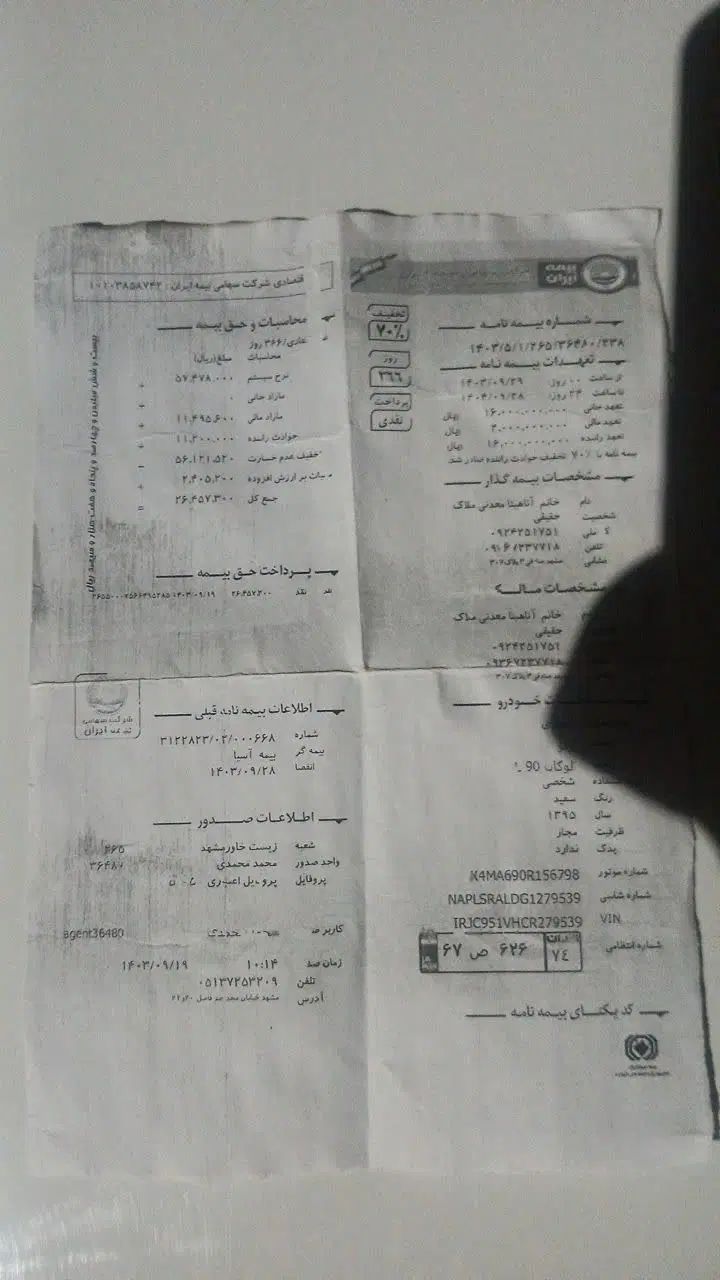 بیمه ایران
شماره بیمه نامه
۱۴۰۳/۵/۱/۲۶۵/۳۶۴۸۰/۲۳۸
تعهدات بیمه نامه
از ساعت ۰۰ روز: ۱۴۰۳/۰۹/۲۹
تا ساعت ۲۴ روز: ۱۴۰۴/۰۹/۲۸
تعهد جانی ۱۶,۰۰۰,۰۰۰,۰۰۰ ریال
تعهد مالی ۴,۰۰۰,۰۰۰,۰۰۰ ریال
تعهد راننده ۱۶,۰۰۰,۰۰۰,۰۰۰ ریال
بیمه نامه با ۷۰٪ تخفیف حوادث راننده صادر شد.
تخفیف
۷۰%
روز
۳۶۶
پرداخت
نقدی
مشخصات بیمه گذار
نام خانم آناهیتا معدنی ملاک
شخصیت حقیقی
ک ملی ۰۹۲۴۲۵۱۷۵۱
تلفن
نشانی
مشخصات مالک
خانم آناهیتا معدنی ملاک
حقیقی
۰۹۲۴۲۵۱۷۵۱
۰۹۳۶۷۲۳۷۷۱۸
خودرو
لوگان 90
شخصی
رنگ سفید
سال ۱۳۹۵
ظرفیت مجاز
یدک ندارد
شماره موتور K4MA690R156798
شماره شاسی NAPLSRALDG1279539
VIN IRJC951VHCR279539
شماره انتظامی ۶۷ ص ۶۲۶ ایران ۷۴
کد یکتای بیمه نامه
اقتصادی شرکت سهامی بیمه ایران: ۱۰۱۰۳۸۵۸۷۴۲
محاسبات و حق بیمه
عادی/۳۶۶ روز
محاسبات مبلغ(ریال)
نرخ سیستم ۵۷,۴۷۸,۰۰۰ +
مازاد جانی ۰ +
مازاد مالی ۱۱,۴۹۵,۶۰۰ +
حوادث راننده ۱۱,۲۰۰,۰۰۰ +
تخفیف عدم خسارت ۵۶,۱۲۱,۵۲۰ -
مالیات بر ارزش افزوده ۲,۴۰۵,۲۰۰ +
جمع کل ۲۶,۴۵۷,۳۰۰ =
بیست و شش میلیون و چهارصد و پنجاه و هفت هزار و سیصد ریال
پرداخت حق بیمه
نقد ۲۶,۴۵۷,۳۰۰ ۱۴۰۳/۰۹/۱۹
اطلاعات بیمه نامه قبلی
شماره ۳۱۲۲۸۲۳/۰۲/۰۰۰۶۶۸
بیمه گر بیمه آسیا
انقضا ۱۴۰۳/۰۹/۲۸
شرکت سهامی
بیمه ایران
اطلاعات صدور
شعبه زیست خاورمشهد ۲۶۵
واحد صدور محمد محمدی ۳۶۴۸۰
پروفایل
کاربر agent36480
زمان ۱۰:۱۴ ۱۴۰۳/۰۹/۱۹
تلفن ۰۵۱۳۷۲۵۳۲۰۹
آدرس